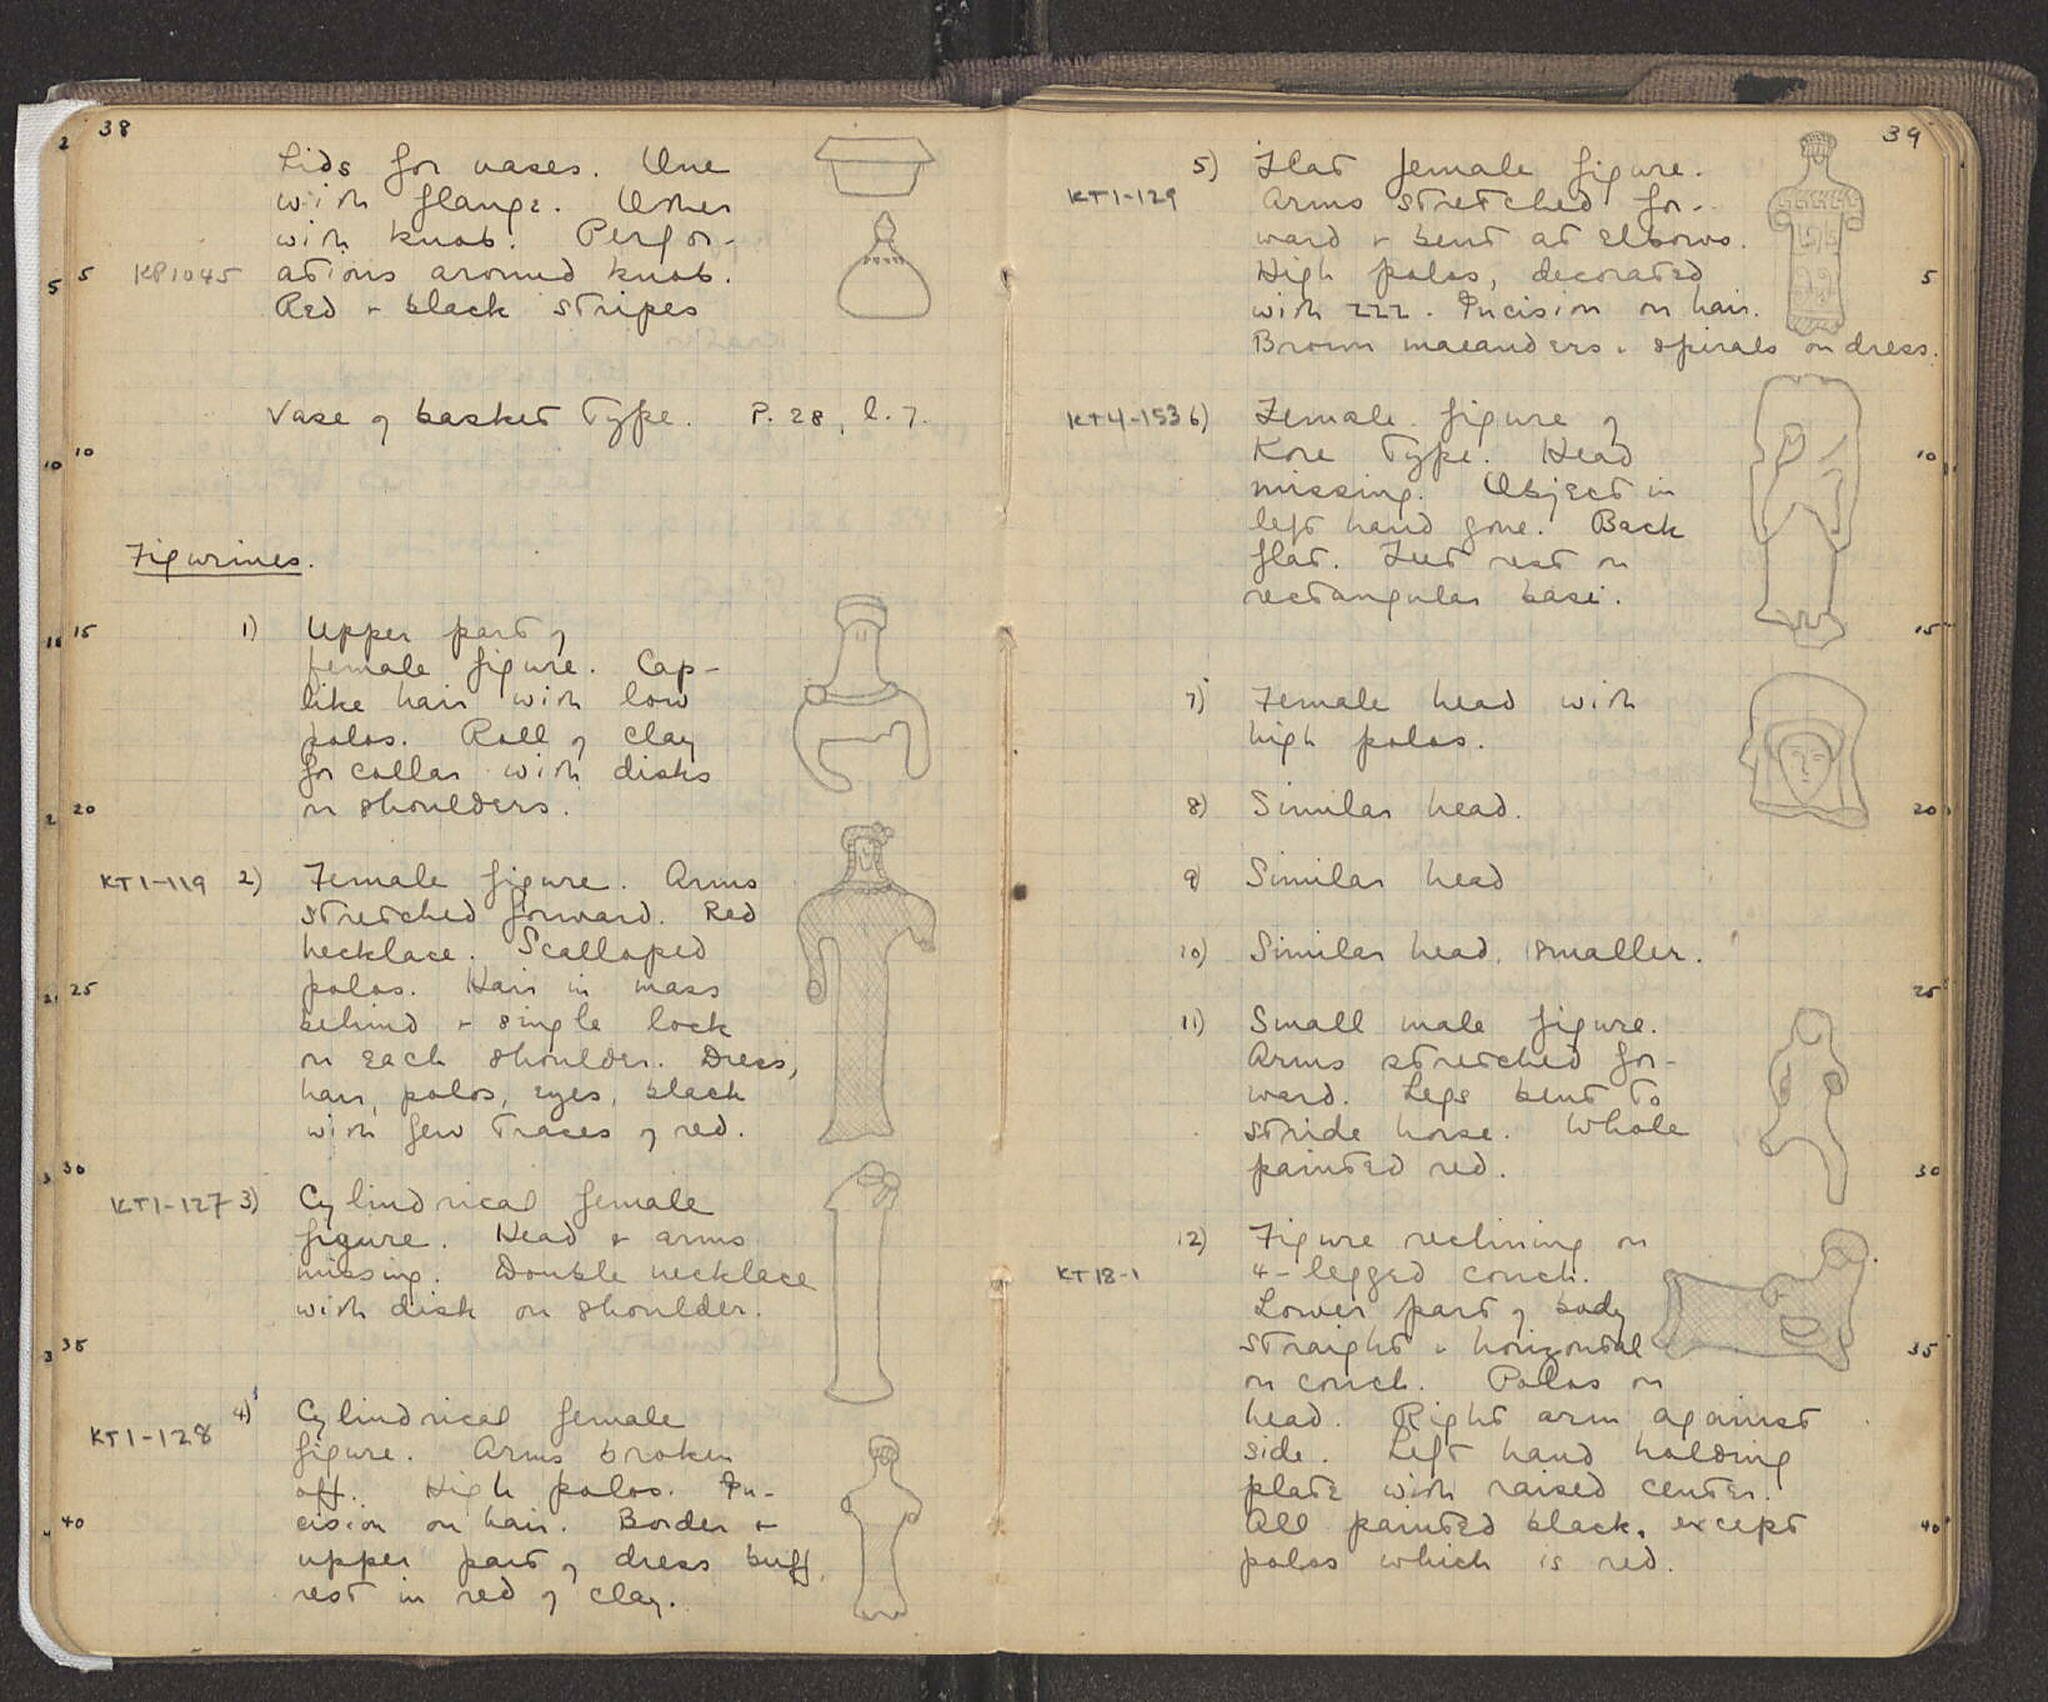 38
Lids for vases. One
with flange. Other
with knob. Perfor-
KP1045 ations around knob.
Red + black stripes
Vase of basket type. P. 28, l. 7.
Figurines.
1) Upper part of
female figure. Cap-
like hair with low
polos. Roll of clay
for collar with disks
on shoulders.
KT1-119 2) Female figure. Arms
stretched forward. Red
necklace. Scalloped
polos. Hair in mass
behind + single lock
on each shoulder. Dress,
hair, polos, eyes, black
with few traces of red.
KT1-127 3) Cylindrical female
figure. Head + arms
missing. Double necklace
with disk on shoulder.
4) Cylindrical female
KT1-128 figure. Arms broken
off. High polos. In-
cision on hair. Border +
upper part of dress buff,
rest in red of clay.
5
10
15
20
25
30
35
40
39
5) Flat female figure.
KT1-129 Arms stretched for-
ward + bent at elbows.
High polos, decorated
with zzz. Incision on hair.
Brown maeanders + spirals on dress.
KT4-153 6) Female figure of
Kore type. Head
missing. Object in
left hand gone. Back
flat. Feet rest on
rectangular base.
7) Female head with
high polos.
8) Similar head.
9) Similar head
10) Similar head, smaller.
11) Small male figure.
Arms stretched for-
ward. Legs bent to
stride horse. Whole
painted red.
12) Figure reclining on
KT18-1 4-legged couch.
Lower part of body
straight + horizontal
on couch. Polos on
head. Right arm against
side. Left hand holding
plate with raised center.
All painted black, except
polos which is red.
5
10
15
20
25
30
35
40